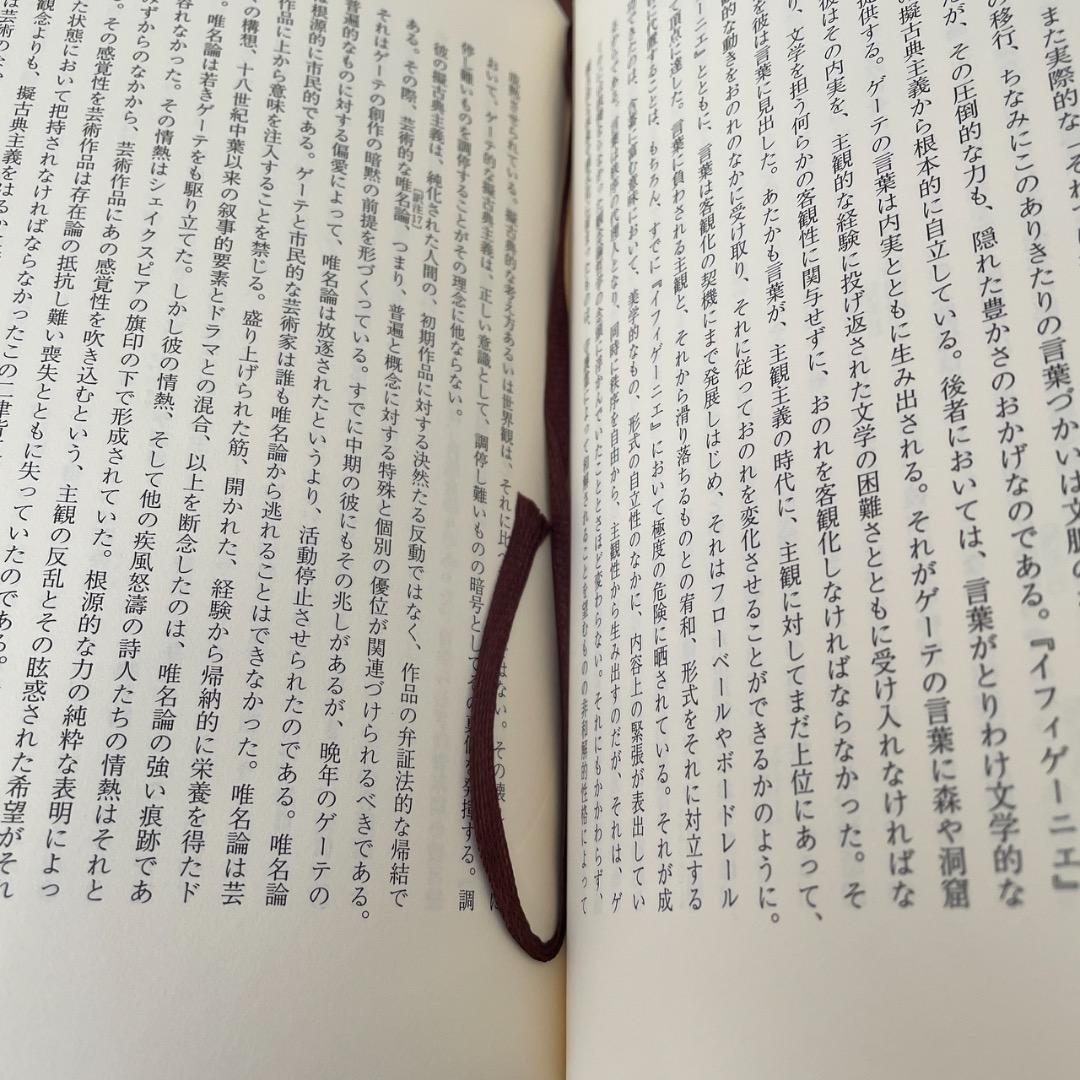 また実際的な「それ
の移行、ちなみにこのありきたりの言葉づかいは文脈の
だが、その圧倒的な力も、隠れた豊かさのおかげなのである。『イフィゲーニエ』
の擬古典主義から根本的に自立している。後者においては、言葉がとりわけ文学的な
提供する。ゲーテの言葉は内実とともに生み出される。それがゲーテの言葉に森や洞窟
彼はその内実を、主観的な経験に投げ返された文学の困難さとともに受け入れなければな
り、文学を担う何らかの客観性に関与せずに、おのれを客観化しなければならなかった。そ
を彼は言葉に見出した。あたかも言葉が、主観主義の時代に、主観に対してまだ上位にあって、
的な動きをおのれのなかに受け取り、それに従っておのれを変化させることができるかのように。
ーニエ』とともに、言葉は客観化の契機にまで発展しはじめ、それはフローベールやボードレール
て頂点に達した。言葉に負わされる主観と、それから滑り落ちるものとの宥和、形式をそれに対立する
に代置することは、もちろん、すでに『イフィゲーニエ』において極度の危険に晒されている。それが成
できたのは、含蓄に富む意味において、美学的なもの、形式の自立性のなかに、内容上の緊張が表出してい
言葉は秩序の代理人となり、同時に秩序を自由から、主観性から生み出すのだが、それは、ゲ
擬古典的な考え方あるいは世界観は、それに比
おいて、ゲーテ的な擬古典主義は、正しい意識として、調停し難いものの暗号として
停し難いものを調停することがその理念に他ならない。
彼の擬古典主義は、純化された人間の、初期作品に対する決然たる反動ではなく、作品の弁証法的な帰結で
ある。その際、芸術的な唯名論、つまり、普遍と概念に対する特殊と個別の優位が関連づけられるべきである。
それはゲーテの創作の暗黙の前提を形づくっている。すでに中期の彼にもその兆しがあるが、晩年のゲーテの
普遍的なものに対する偏愛によって、唯名論は放逐されたというより、活動停止させられたのである。唯名論
は根源的に市民的である。ゲーテと市民的な芸術家は誰も唯名論から逃れることはできなかった。唯名論は芸
作品に上から意味を注入することを禁じる。盛り上げられた筋、開かれた、経験から帰納的に栄養を得たド
の構想、十八世紀中葉以来の叙事的要素とドラマとの混合、以上を断念したのは、唯名論の強い痕跡であ
。唯名論は若きゲーテをも駆り立てた。しかし彼の情熱、そして他の疾風怒濤の詩人たちの情熱はそれと
容れなかった。その情熱はシェイクスピアの旗印の下で形成されていた。根源的な力の純粋な表明によっ
みずからのなかから、芸術作品にあの感覚性を吹き込むという、主観の反乱とその眩惑された希望がそれ
。その感覚性を芸術作品は存在論の抵抗し難い喪失とともに失っていたのである。
た状態において把持されなければならなかったこの二律背
観念よりも、擬古典主義をはるか